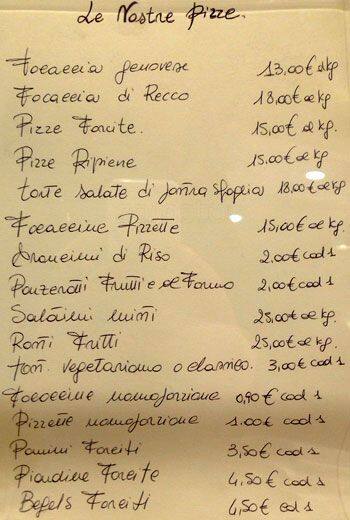 Le Nostre Pizze.
Focaccia genovese 13,00€ al kg
Focaccia di Recco 18,00€ al kg.
Pizze Farcite. 15,00€ al kg.
Pizze Ripiene 15,00€ al kg.
torte salate di pasta sfoglia 18,00€ al kg
Focaccine Pizzette 15,00€ al kg.
Arancini di Riso 2,00€ cad 1
Panzerotti Frutti e al Forno 2,00€ cad 1
Salatini mini 25,00€ al kg.
Fritti 25,00€ al kg.
vegetariano o classico. 3,00€ cad 1
Focaccine monoporzione 0,90€ cad 1
Pizzette monoporzione 1.00€ cad 1
Panini Farciti 3,50€ cad 1
Piadine Farcite 4,50€ cad 1
Begels Farciti 4,50€ cad 1